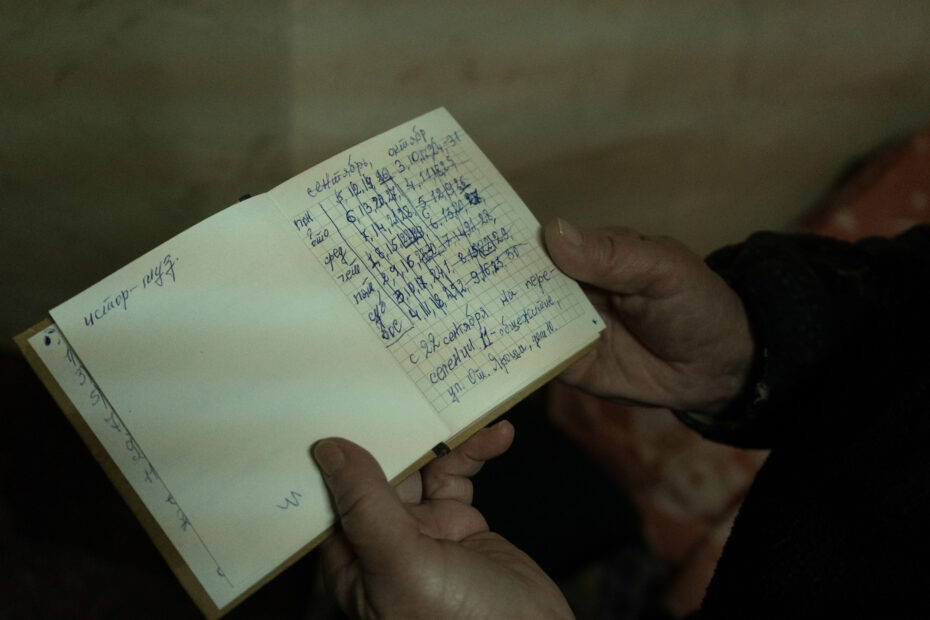 истор-муз.
сентябрь, октябр
пон 5, 12, 19, 26 3, 10, 17, 24, 31
вто 6, 13, 20, 27, 4, 11, 18, 25
сред 7, 14, 21, 28, 5, 12, 19, 26
чет 1, 8, 15, 22, 29 6, 13, 20, 27
пят 2, 9, 16, 23, 30 7, 14, 21, 28,
суб 3, 10, 17, 24, 1, 8, 15, 22, 29,
вос 4, 11, 18, 25, 2, 9, 16, 23, 30
с 22 сентября на пере-
селении. 11-общежитие,
ул. От. Яроша, дом